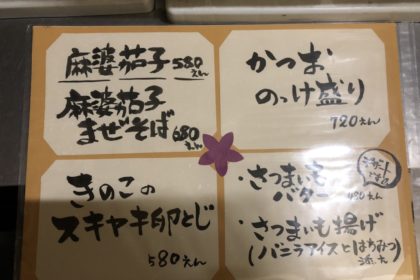 麻婆茄子 580えん
麻婆茄子
まぜそば 680えん
かつお
のっけ盛り
720えん
きのこの
スキヤキ卵とじ
580えん
デザート
です
・さつまいもの
バター 490えん
・さつまいも揚げ
(バニラアイスとはちみつ
添え)